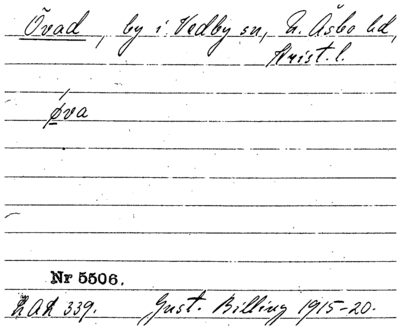 Övad, by i Vedby sn, N. Åsbo hd,
Krist. l.
øva
Nr 5506.
LAL 339. Gust. Billing 1915-20.